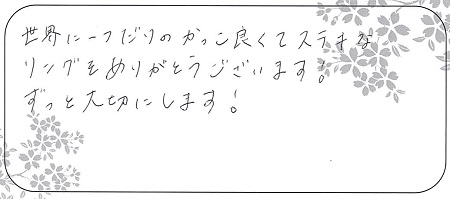 世界に一つだけのかっこ良くてステキな
リングをありがとうございます!
ずっと大切にします!